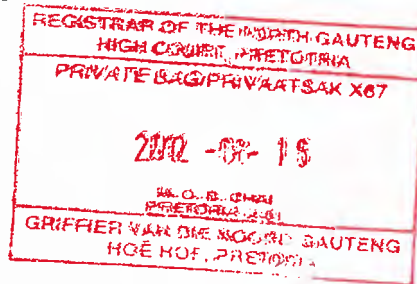 REGISTRAR OF THE NORTH GAUTENG
HIGH COURT, PRETORIA
PRIVATE BAG/PRIVAATSAK X67
GRIFFIER VAN DIE NOORD GAUTENG
HOË HOF, PRETORIA